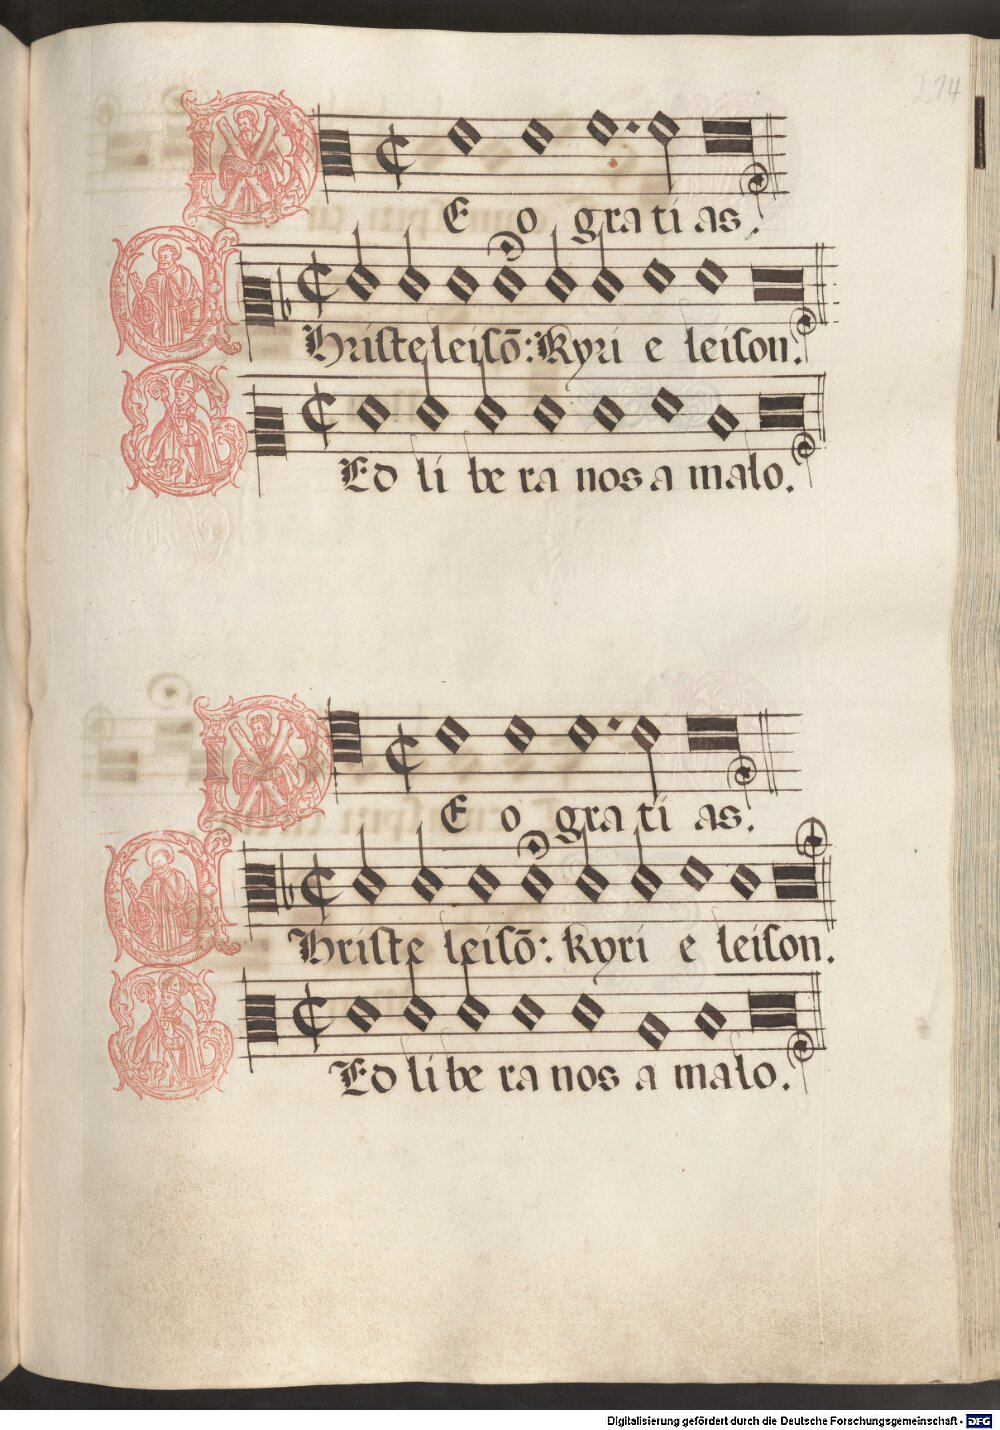 274
DEo gratias.
CHriste leisō: Kyri e leison.
SEd li be ra nos a malo.
DEo gratias.
CHriste leisō: kyri e leison.
SEd li be ra nos a malo.
Digitalisierung gefördert durch die Deutsche Forschungsgemeinschaft - DFG